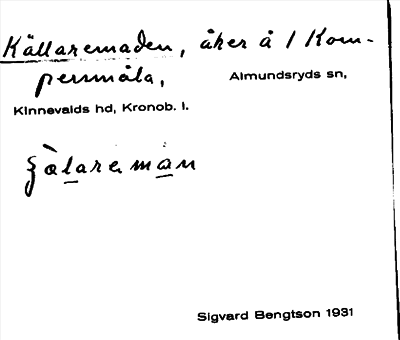 Källaremaden, åker å 1 Kom-
persmåla,
Almundsryds sn,
Kinnevalds hd, Kronob. l.
Sigvard Bengtson 1931